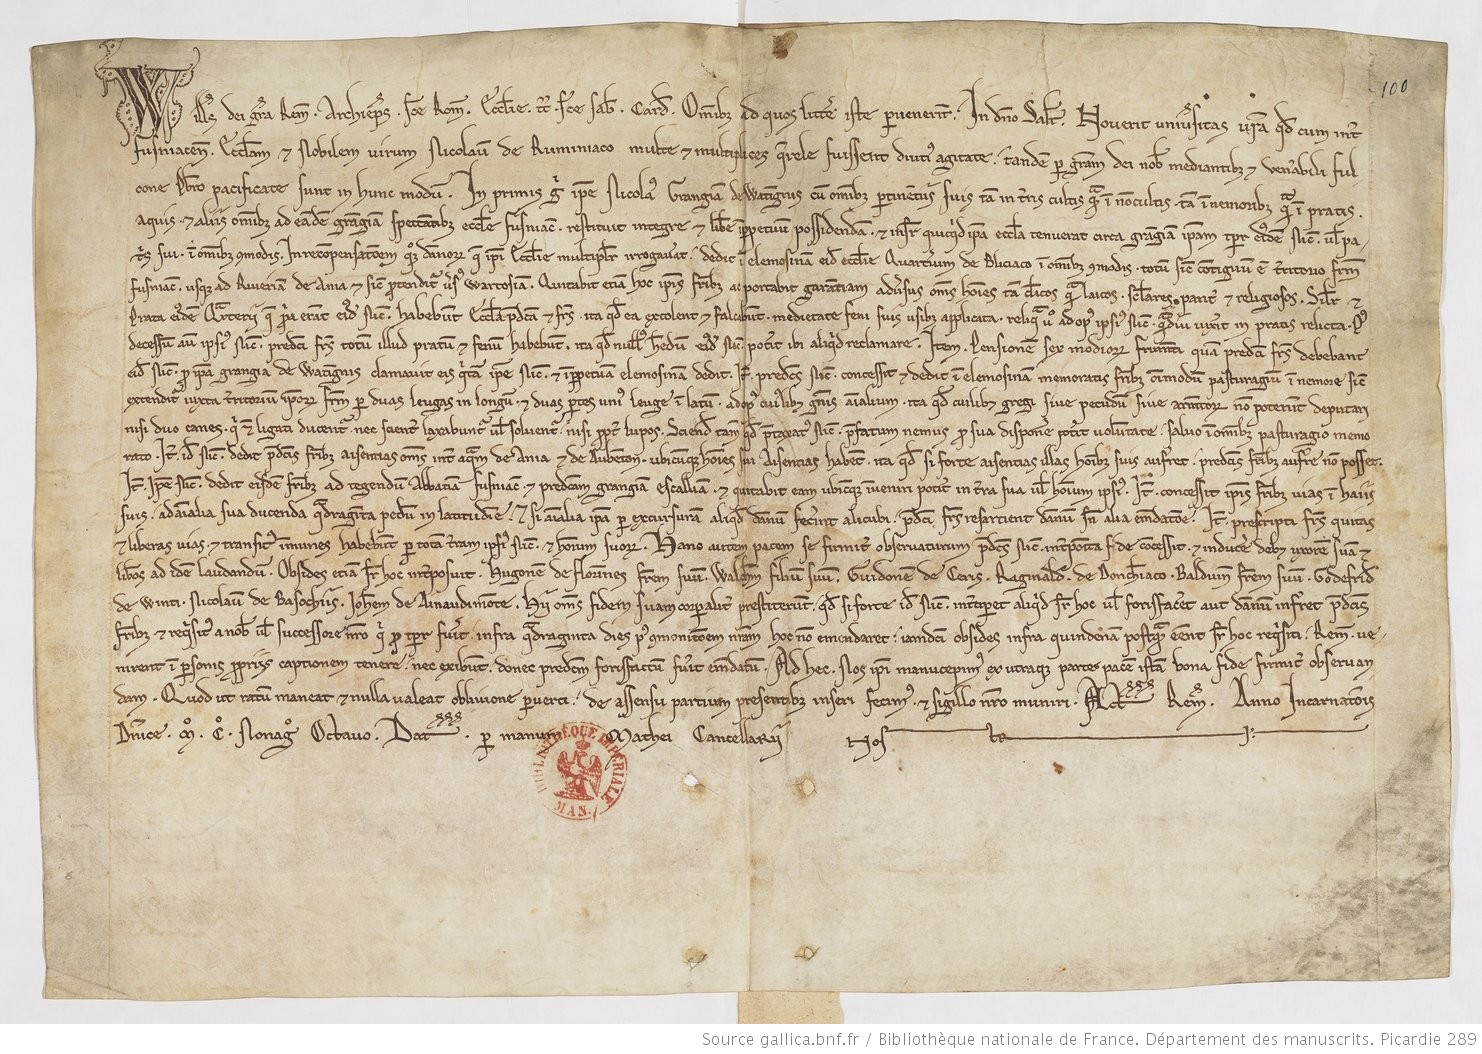 100
Will's dei gr̄a Rem̄. Archiep̄s. sc̄e Rom̄. Eccl̄ie. tt̄. sc̄e Sab̄. Card̄. Om̄ibꝫ ad quos litte iste p̱venerint. In dn̄o Salt̄. Noverit univ̄sitas vr̄a qd̄ cum int̄
fusniacen̄. Eccl̄iam ⁊ Nobilem virum Nicolaū de Ruminiaco multe ⁊ multiplices q̄rele fuissent diuti' agitate. tandē p̱ gr̄am dei nob̄ mediantibꝫ ⁊ ven̄abili ful
cone pacificate sunt in hunc modū. In primis ip̄e Nicola' Grangiā de Watignis cū om̄ibꝫ p̱tinētiis suis tā in t̄ris cultis q̄ i nocultis. tā i nemoribꝫ q̄ i pratis.
aquis. ⁊ aliis om̄ibꝫ ad eādē grangiā spectantibꝫ eccl̄ie fusniac̄. restituit integre ⁊ libe ī p̱petuū possidendā. ⁊ insr̄ quicq'd ip̄a eccl̄ia tenuerat circa grangiā ip̄am tp̄r eī'dē Nic̄. ul̄ pa-
t's sui. i om̄ibꝫ ꝯmodis. In recompensat̄oem q° dānor q̄ ip̄i Eccl̄ie multiplr̄ irrogavit. dedit ī elemosinā eid̄ eccl̄ie Quart̄ium de Buciaco i om̄ibꝫ ꝯmodis. totū sic̄ contiguū ē t̄ritorio fr̄m
fusniac̄. usqꝫ ad Riveriā de Ania ⁊ sic̄ p̱tendit' us' Wartosiā. Quitabit etiā hoc ip̄is fr̄ibꝫ ac portabit garantiam adv̄sus om̄s hoīes tā cl̄icos q̄ laicos. sc̄lares parit̄ ⁊ religiosos. Silr̄ ⁊
Prata ei'dem Q̄rterii q̄ p̱a erāt ei'd̄ Nic̄. habebūt Eccl̄ia p̱dc̄a ⁊ fr̄s. ita qd̄ ea excolent ⁊ falcabūt. medietate feni suis usibꝫ applicata. reliq̄ v° ad op' ipsi' Nic̄. q̄diu vixit in pratis relicta. P'
decessum aū ipsi' Nic̄. predc̄i fr̄s totū illud pratū ⁊ fenū habebūt. ita qd̄ null' h̄edū ei'd̄ Nic̄. potit ibi aliq'd reclamare. Item. Pensionem sex modior frum̄ti quā predc̄i fr̄s debebant
eid̄ Nic̄. p̱ ip̄a grangia de Watignis clamavit eis q'tā ip̄e Nic̄. ⁊ i p̱petuā elemosinā dedit. It̄. predc̄s Nic̄. concessit ⁊ dedit ī elemosinam memoratis fr̄ibꝫ om̄imodū pasturagiū i nemore sic̄
extendit' iuxta t̄ritoriū ipor fr̄m p̱ duas leugas in longū. ⁊ duas p̱tes uni' leuge ī latū. ad op' cui'libꝫ gn̄is aīalium. ita qd̄ cuilibꝫ gregi sive pecudum sive armtor nō poterūt deputari
nisi duo canes. q' ⁊ ligati ducent'. nec scient̄ laxabunt' ul̄ solvent'. nisi p̱pt̄ lupos. Sciend̄ tam̄ qd̄ p̱taxat' Nic̄. p̱fatum nemus p̱ sua dispon̄e pot̄it volūtate. salvo i om̄ibꝫ pasturagio memo
rato. It̄. id̄ Nic̄. dedit p̱dc̄is fr̄ibꝫ aisentias om̄s int̄ aq̄m de Ania ⁊ de Aubentōn. ubicūqꝫ hoīes sui aisentias habent. ita qd̄ si forte aisentias illas hoībꝫ suis aufret. predc̄is fr̄ibꝫ aufr̄e nō posset.
It̄. Ip̄e Nic̄. dedit eisdē fr̄ibꝫ ad tegendū Abbatiā fusniac̄. ⁊ predc̄am grangiā escalliā. ⁊ quitabit eam ubicūqꝫ inveniri pot̄it in t̄ra sua ul̄ hoīum ipsi'. It̄. concessit ip̄is fr̄ibꝫ vias ī haiis
suis. ad aīalia sua ducenda q̄draginta pedū in latitudīe. Et si aīalia ip̄a p̱ excursurā aliq'd dānū fec̄int alicubi. p̱dc̄i fr̄s resartient dānū sn̄ alia emdat̄oe. It̄. prescripti fr̄s quitas
⁊ liberas vias ⁊ transit' īmunes habebūt p̱ totā t̄ram ipsi' Nic̄. ⁊ hoīum suor. Hanc autem pacem se firmit̄ observaturum p̱dc̄s Nic̄. int̄posita fide concessit. ⁊ induc̄e debꝫ uxorē suā ⁊
lib̄os ad idē laudandū. Obsides etiā sr̄ hoc int̄posuit. Hugonē de Florines fr̄em suū. Walch̄m filiū suū. Guidonē de Ceris. Raginald̄. de Donch̄iaco. Balduin̄ fr̄em suū. Godefrid̄
de Winti. Nicolaū de Basochiis. Ioh̄em de Ainaudimōte. Hii om̄s fidem suam corporalit̄ prestiterunt. qd̄ si forte id̄ Nic̄. int̄cip̱et aliq'd sr̄ hoc ul̄ forisfac̄et aut dānū infret p̱dc̄is
fr̄ibꝫ ⁊ req'sit' a nob̄ ul̄ successore nr̄o q' p̱ tp̄r fu'it. infra q̄draginta dies p' ꝯmonit̄oem nr̄am hoc nō emendaret. iamdc̄i obsides infra quindenā postq̄ eēnt sr̄ hoc req'siti. Rem̄. ve-
nirent ī p̱sonis p̱priis captionem tenere. nec exibūt. donec predc̄m forisfactū fu'it emdatū. Ad hec. Nos ip̄i manucepim' ex utraqꝫ parte pacē istā bona fide firmit̄ observan
dam. Quod ut ratū maneat ⁊ nulla valeat oblivione p̱verti. de assensu partium presentibꝫ inseri fecim' ⁊ sigillo nr̄o muniri. Act̄ Rem̄. Anno Incarnat̄ois
Dn̄ice. m̊. c̊. Nonag̊ Octavo. Dat̄. p̱ manum Mathei Cancellarii nos
BIBLIOTHÈQUE IMPÉRIALE MAN.
Source gallica.bnf.fr / Bibliothèque nationale de France. Département des manuscrits. Picardie 289